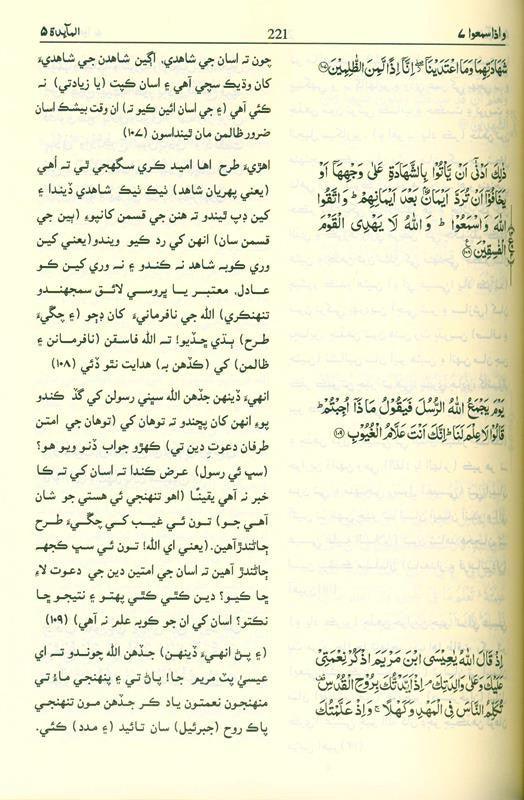 واذا سمعوا ۷
221
المآىدة ۵
شَهَادَتِهِمَا وَمَا اعْتَدَيْنَآ ۖ اِنَّآ اِذًا لَّمِنَ الظّٰلِمِيْنَ ﴿۱۰۷﴾
ذٰلِكَ اَدْنٰٓى اَنْ يَّاْتُوْا بِالشَّهَادَةِ عَلٰى وَجْهِهَآ اَوْ
يَخَافُوْٓا اَنْ تُرَدَّ اَيْمَانٌۢ بَعْدَ اَيْمَانِهِمْ ؕ وَاتَّقُوا
اللّٰهَ وَاسْمَعُوْا ؕ وَاللّٰهُ لَا يَهْدِى الْقَوْمَ
الْفٰسِقِيْنَ ﴿۱۰۸﴾
يَوْمَ يَجْمَعُ اللّٰهُ الرُّسُلَ فَيَقُوْلُ مَاذَآ اُجِبْتُمْ ؕ
قَالُوْا لَا عِلْمَ لَنَا ؕ اِنَّكَ اَنْتَ عَلَّامُ الْغُيُوْبِ ﴿۱۰۹﴾
اِذْ قَالَ اللّٰهُ يٰعِيْسَى ابْنَ مَرْيَمَ اذْكُرْ نِعْمَتِيْ
عَلَيْكَ وَعَلٰى وَالِدَتِكَ ۘ اِذْ اَيَّدْتُّكَ بِرُوْحِ الْقُدُسِ ۟
تُكَلِّمُ النَّاسَ فِى الْمَهْدِ وَكَهْلًا ۚ وَاِذْ عَلَّمْتُكَ
چون ته اسان جي شاهدي، اڳين شاهدن جي شاهديءَ
کان وڌيڪ سچي آهي ۽ اسان ڪپت (يا زيادتي) نه
ڪئي آهي (۽ جي اسان ائين ڪيو ته) ان وقت بيشڪ اسان
ضرور ظالمن مان ٿينداسون. (۱۰۷)
اهڙيءَ طرح اها اميد ڪري سگهجي ٿي ته اهي
(يعني پهريان شاهد) ٺيڪ ٺيڪ شاهدي ڏيندا ۽
کين ڊپ ٿيندو ته هنن جي قسمن کانپوءِ (ٻين جي
قسمن سان) انهن کي رد ڪيو ويندو(يعني کين
وري ڪوبه شاهد نه ڪندو ۽ نه وري کين ڪو
عادل، معتبر يا ڀروسي لائق سمجهندو
تنهنڪري) الله جي نافرمانيءَ کان ڊڄو (۽ چڱيءَ
طرح) ٻڌي ڇڏيو! ته الله فاسقن (نافرمانن ۽
ظالمن) کي (ڪڏهن به) هدايت نٿو ڏئي (۱۰۸)
انهيءَ ڏينهن جڏهن الله سڀني رسولن کي گڏ ڪندو
پوءِ انهن کان پڇندو ته توهان کي (توهان جي امتن
طرفان دعوت دين تي) ڪهڙو جواب ڏنو ويو هو؟
(سڀ ئي رسول) عرض ڪندا ته اسان کي ته ڪا
خبر نه آهي يقينًا (اهو تنهنجي ئي هستي جو شان
آهي جو) تون ئي غيب کي چڱيءَ طرح
ڄاڻندڙ آهين. (يعني اي الله! تون ئي سڀ ڪجهه
ڄاڻندڙ آهين ته اسان جي امتين دين جي دعوت لاءِ
ڇا ڪيو؟ دين ڪٿي ڪٿي پهتو ۽ نتيجو ڇا
نڪتو؟ اسان کي ان جو ڪوبه علم نه آهي) (۱۰۹)
(۽ پڻ انهيءَ ڏينهن) جڏهن الله چوندو ته اي
عيسيٰ پٽ مريم جا! پاڻ تي ۽ پنهنجي ماءُ تي
منهنجون نعمتون ياد ڪر جڏهن مون تنهنجي
پاڪ روح (جبرئيل) سان تائيد (۽ مدد) ڪئي.